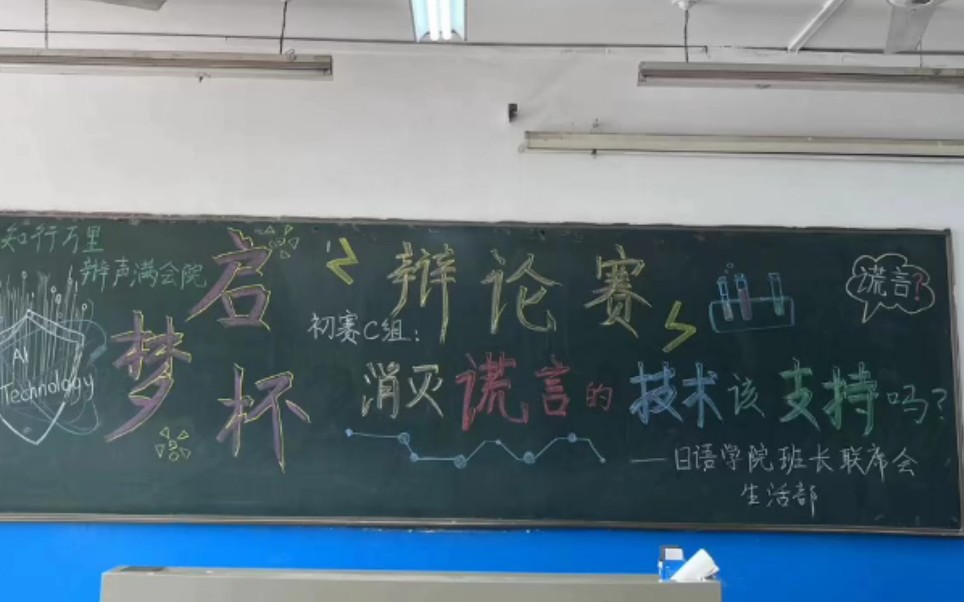 知行万里
辩声满会院
AI
Technology
启梦杯
辩论赛
初赛C组：
消灭谎言的技术该支持吗？
谎言？
——日语学院班长联席会
生活部